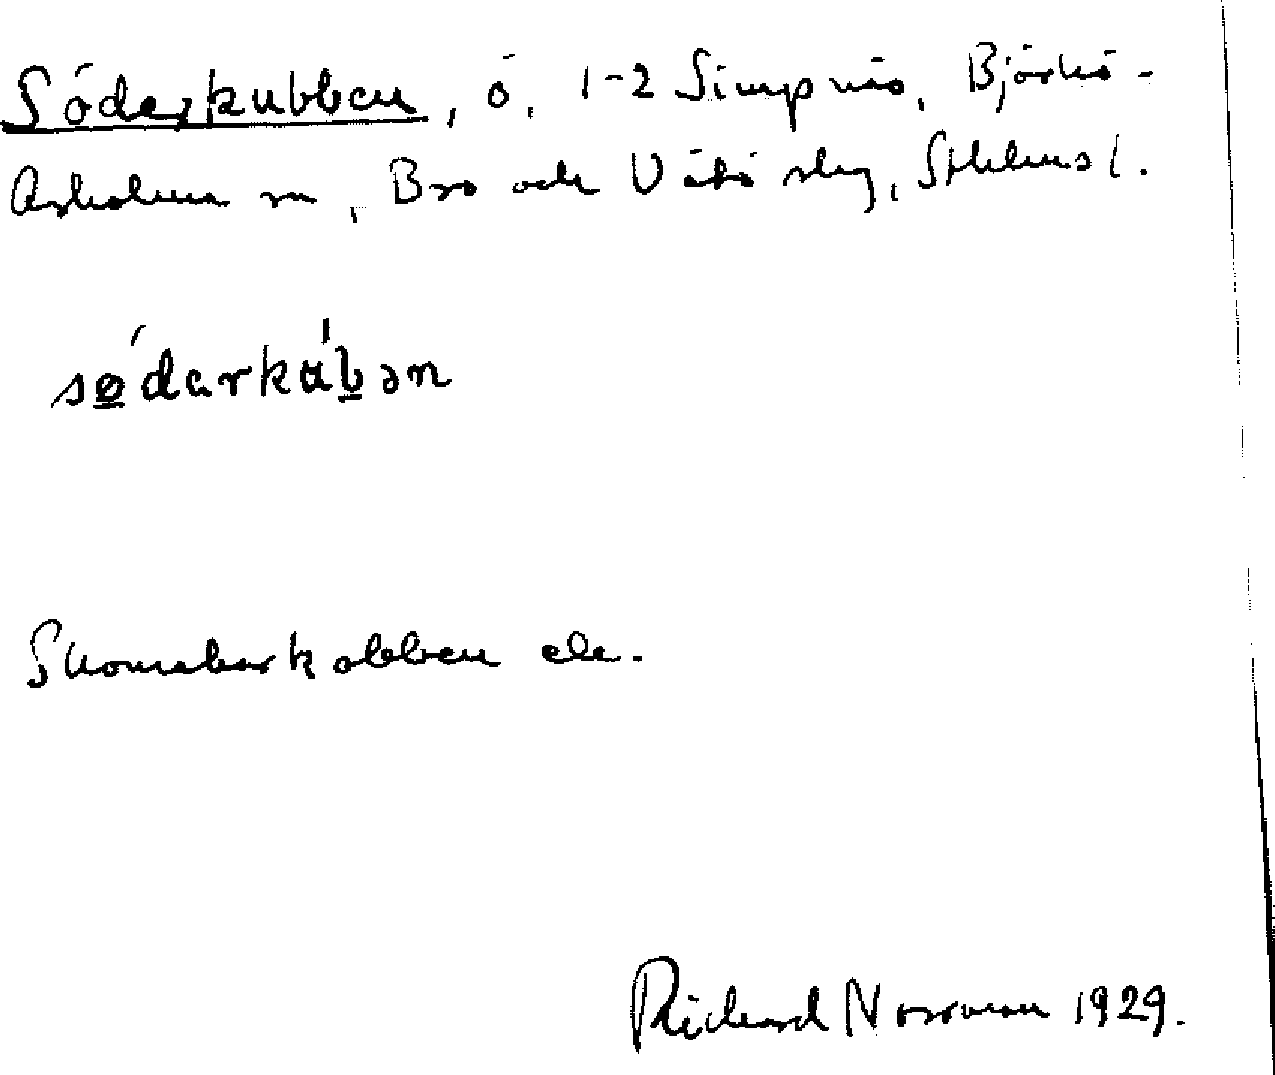 Söderkubben, ö, 1-2 Simpnäs, Björkö-
Arholma sn, Bro och Vätö skg, Sthlms l.
sǿdarkúbən
Skomakarkobben ek.
Richard Norrman 1929.